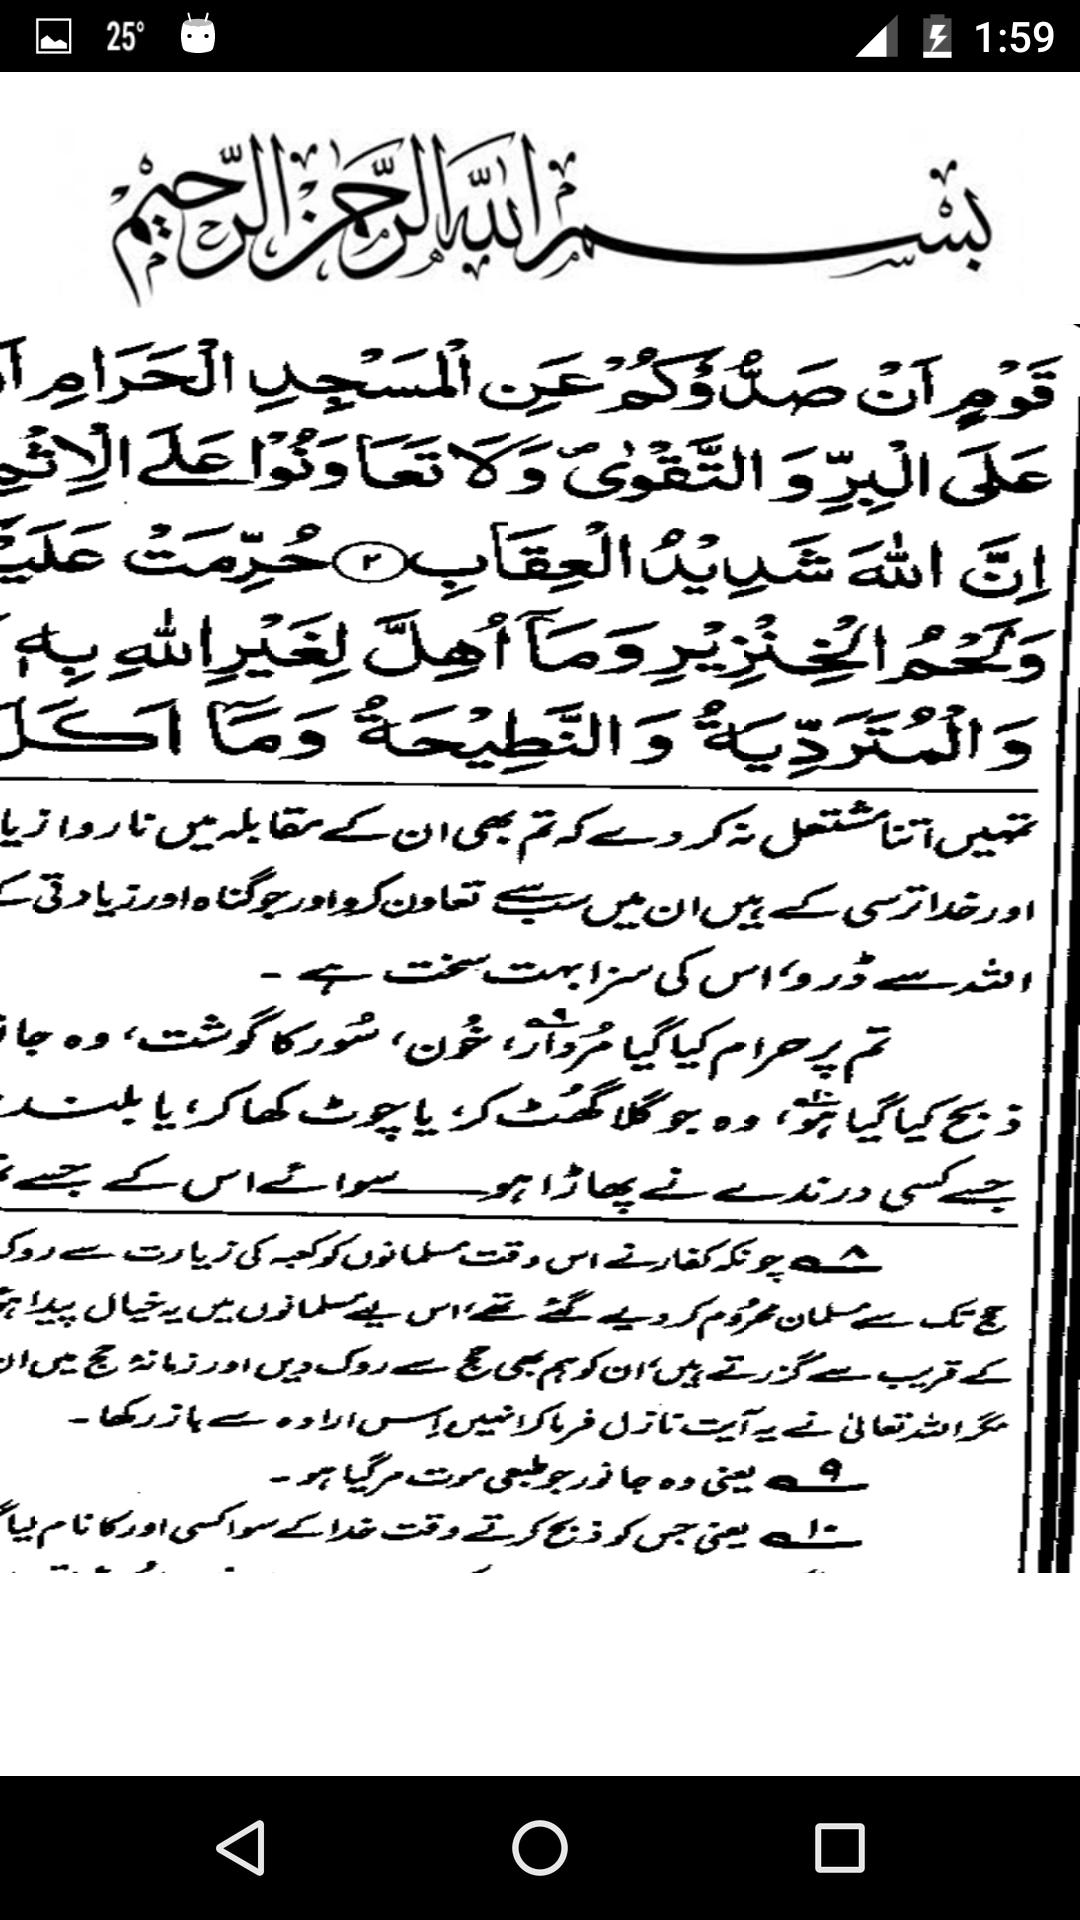 25°
1:59
بِسْمِ اللّٰهِ الرَّحْمٰنِ الرَّحِيْمِ
قَوْمٍ اَنْ صَدُّوْكُمْ عَنِ الْمَسْجِدِ الْحَرَامِ
عَلَى الْبِرِّ وَ التَّقْوٰى وَلَا تَعَاوَنُوْا عَلَى الْاِثْمِ
اِنَّ اللّٰهَ شَدِيْدُ الْعِقَابِ ۲ حُرِّمَتْ
وَلَحْمُ الْخِنْزِيْرِ وَمَآ اُهِلَّ لِغَيْرِ اللّٰهِ بِهٖ
وَالْمُتَرَدِّيَةُ وَالنَّطِيْحَةُ وَمَآ اَكَلَ
تمہیں اتنا مشتعل نہ کر دے کہ تم بھی ان کے مقابلہ میں ناروا زیا
اور خدا ترسی کے ہیں ان میں سب سے تعاون کرو اور جو گناہ اور زیادتی کے
اللہ سے ڈرو، اس کی سزا بہت سخت ہے ۔
تم پر حرام کیا گیا مُردار،۹ خُون، سُور کا گوشت، وہ جا
ذبح کیا گیا ہو،۱۰ وہ جو گلا گھُٹ کر، یا چوٹ کھا کر، یا بلند
جسے کسی درندے نے پھاڑا ہو ــــ سوائے اس کے جسے
۸ چونکہ کفار نے اس وقت مسلمانوں کو کعبہ کی زیارت سے روک
حج تک سے مسلمان محروم کر دیے گئے تھے، اس لیے مسلمانوں میں یہ خیال پیدا
کے قریب سے گزرتے ہیں، ان کو ہم بھی حج سے روک دیں اور زمانۂ حج میں ان
مگر اللہ تعالیٰ نے یہ آیت نازل فرما کر انہیں اِس ارادہ سے باز رکھا ۔
۹ یعنی وہ جانور جو طبعی موت مر گیا ہو ۔
۱۰ یعنی جس کو ذبح کرتے وقت خدا کے سوا کسی اور کا نام لیا